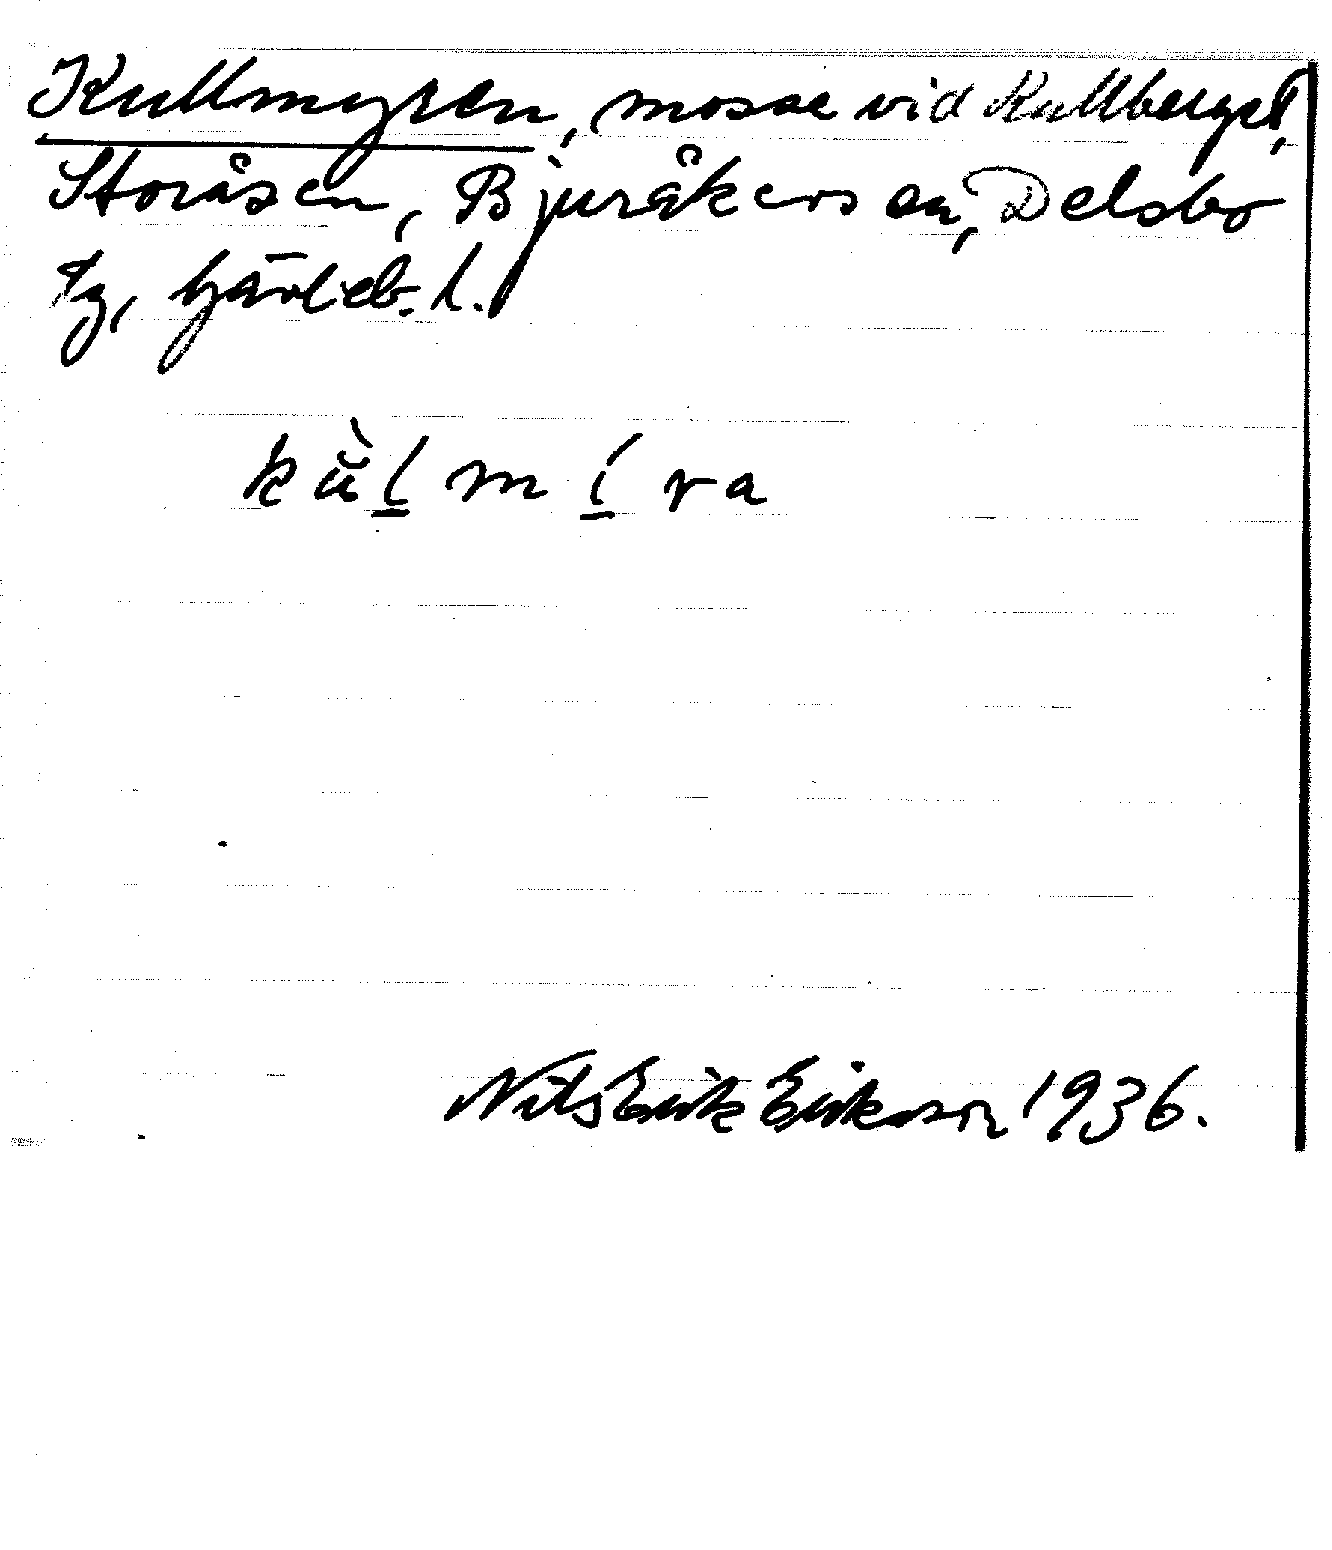 Kullmyren, mosse vid Kullberget,
Storåsen, Bjuråkers sn, Delsbo
tg, Gävleb. l.
kùlmíra
Nils Erik Eriksson 1936.